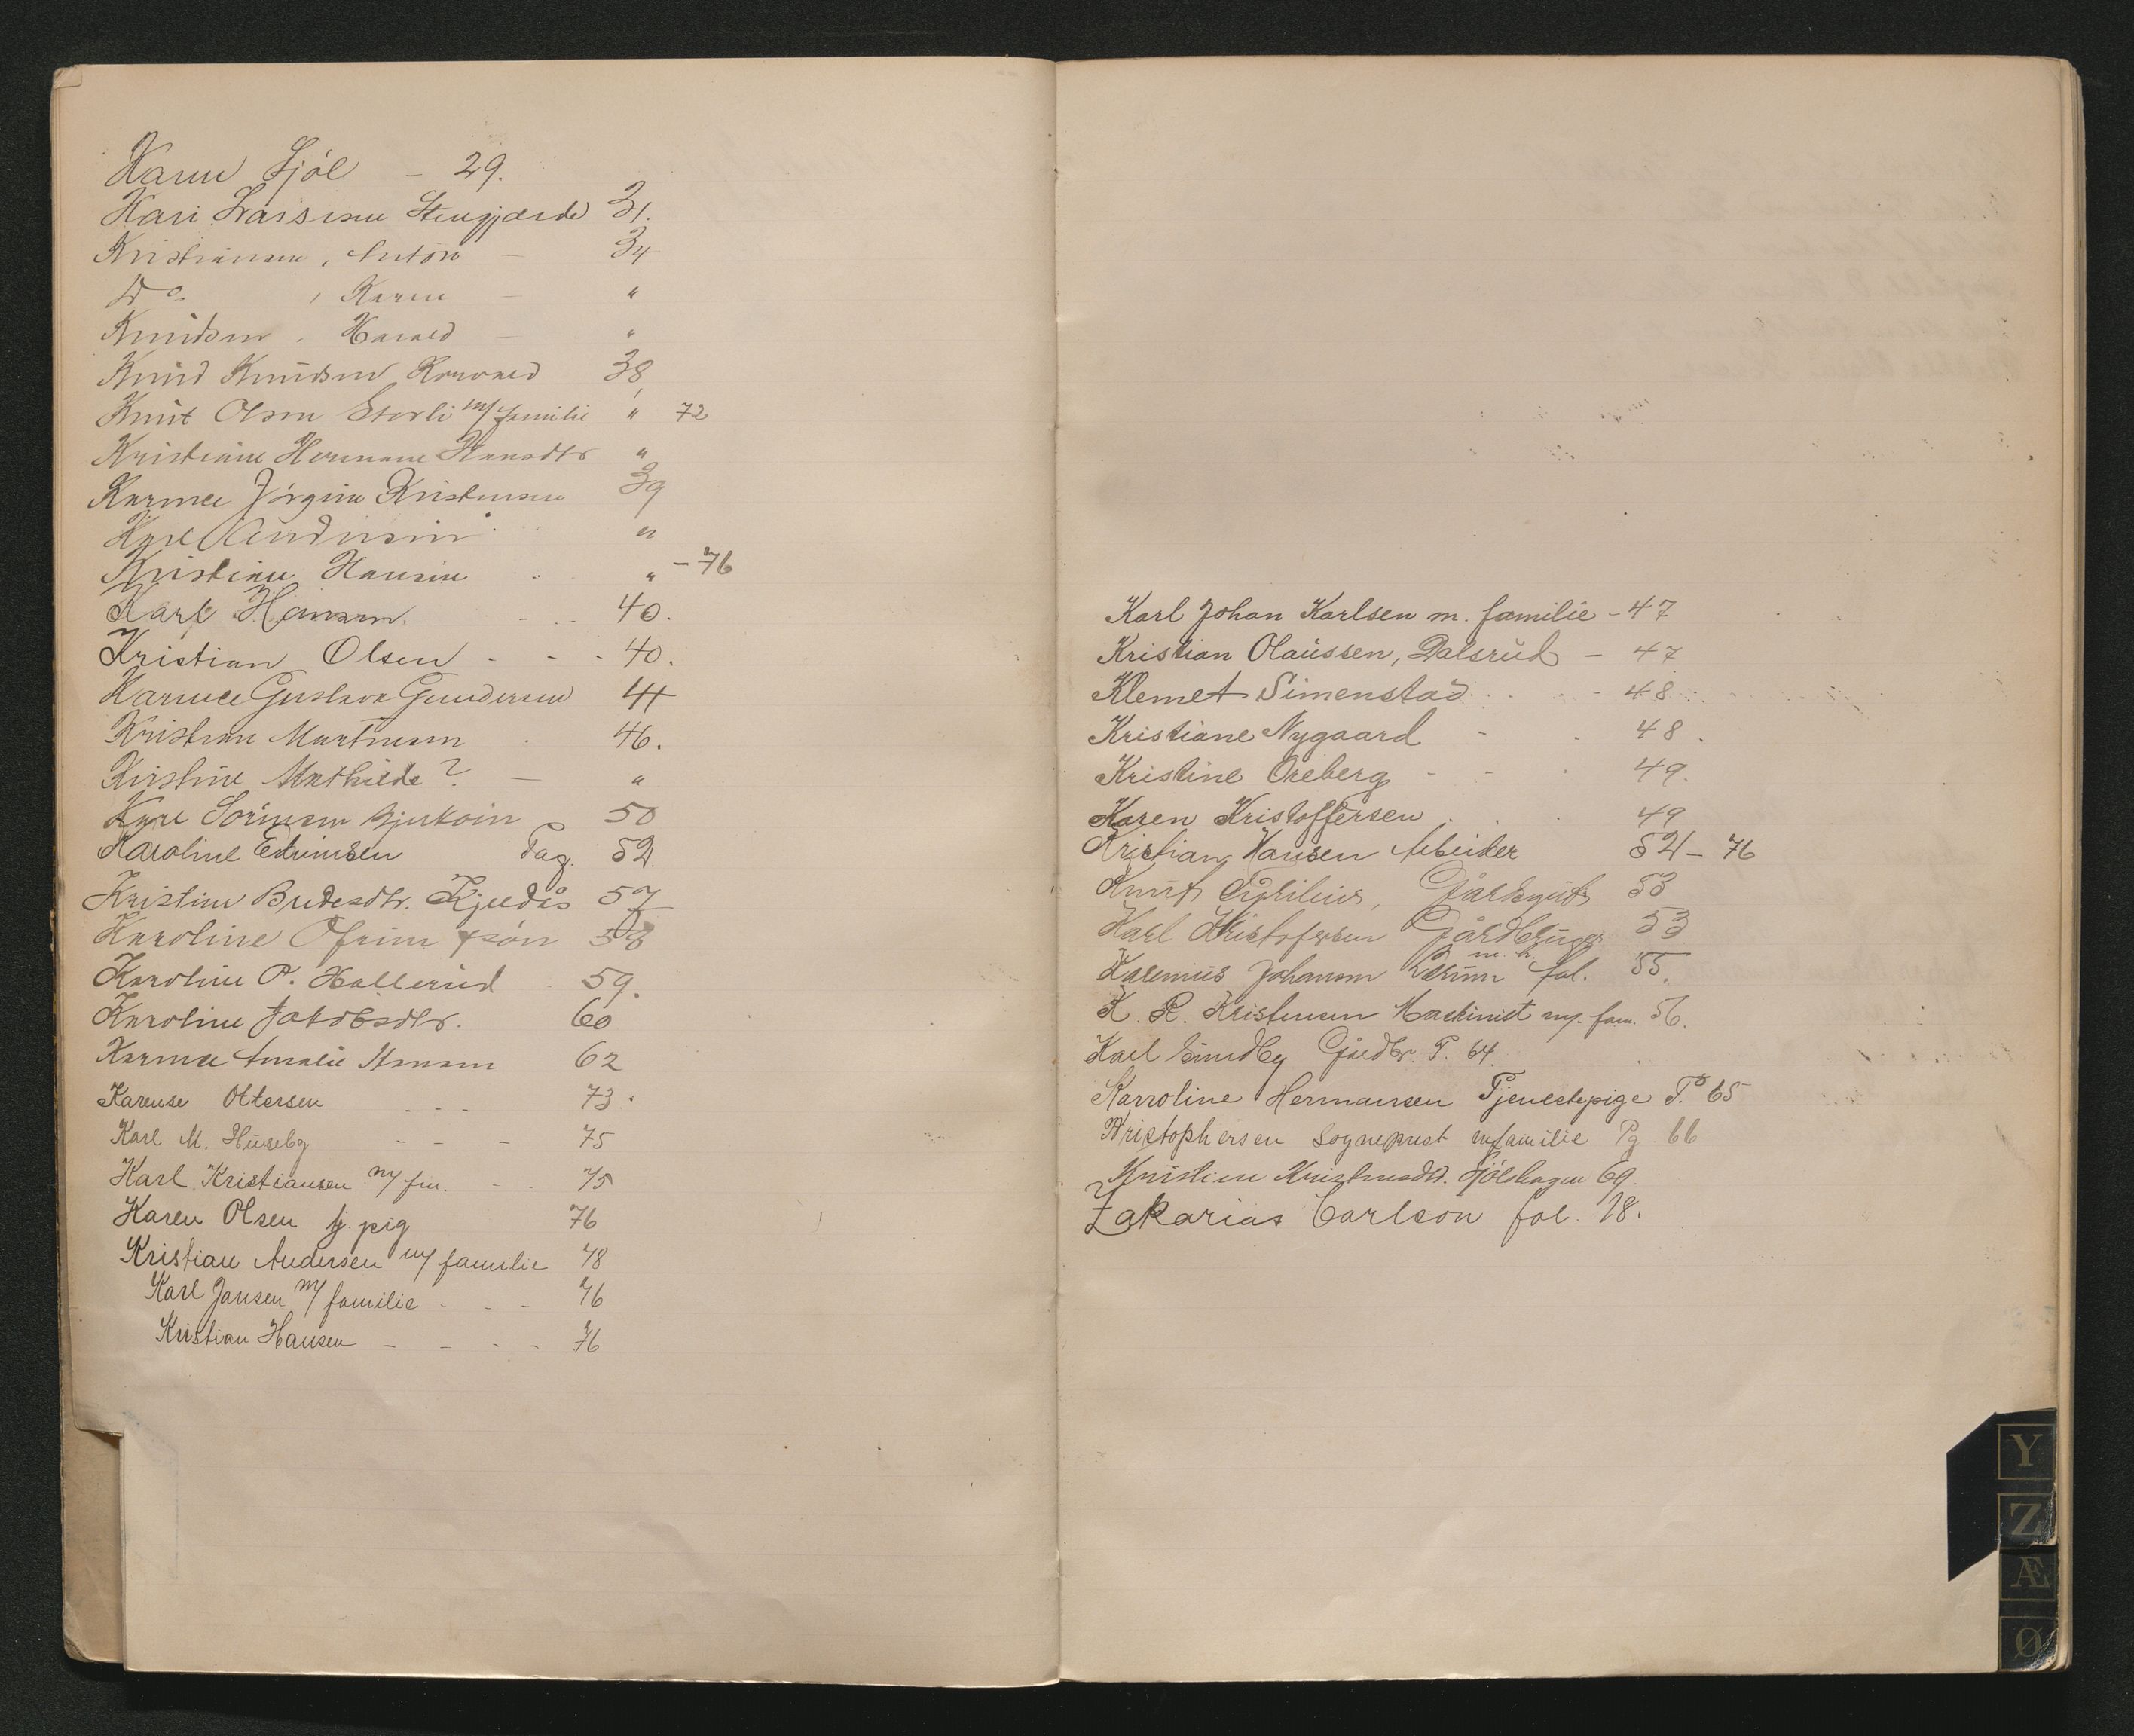 Karen Fjöl - 29.
Kari Larssen Stengjærde 31.
Kristiansen, Anton - 34
Do , Karen - "
Knudsen, Harald - "
Knud Knudsen 38,
Knut Olsen Storli m/ familie " 72
Kristiane Hermane Hansdtr "
Karine Jörgine Kristensen 39
Karl Andersen "
Kristian Hansen " - 76
Karl Hansen 40.
Kristian Olsen - - - 40.
Gustava Gundersen 44
Kristian Martinsen 46.
Kirstine Mathilde? - "
50
Karoline Edvinsen Pag. 52.
Kristine 57
Karoline 58
Karoline P. Hallerud 59.
Karoline Jakobsdtr. 60
Amalie Hansen 62
Karense Ottersen - - - 73.
Karl M. Huseby - - - 75
Karl Kristiansen m/ fm. - - 75
Karen Olsen tj. pig 76
Kristian Andersen m/ familie 78
Karl Jansen m/ familie - - - 76
Kristian Hansen - - - - 76
Karl Johan Karlsen m. familie - 47
Kristian Olaüssen, Dalsrüd - 47
Klemet Simenstad - 48
Kristiane Nygaard - - 48.
Kristine Oreberg - - - 49.
Karen Kristoffersen . . . 49
Kristian Hansen Arbeider 52 - 76
Knut 53
Karl Kristofersen Gårdbruger 53
m. h.
Johansen fol. 55.
K. R. Kristensen Maskinist m/. fam. 56.
Karl Lundby Gårdbr P. 64.
Karroline Hermansen Tjenestepige P. 65
Kristophersen Sogneprest m/familie Pg 66
Kristine Kristensdtr. Fjölshagen 69
Zakarias Carlson fol. 18.
Y
Z
Æ
Ø